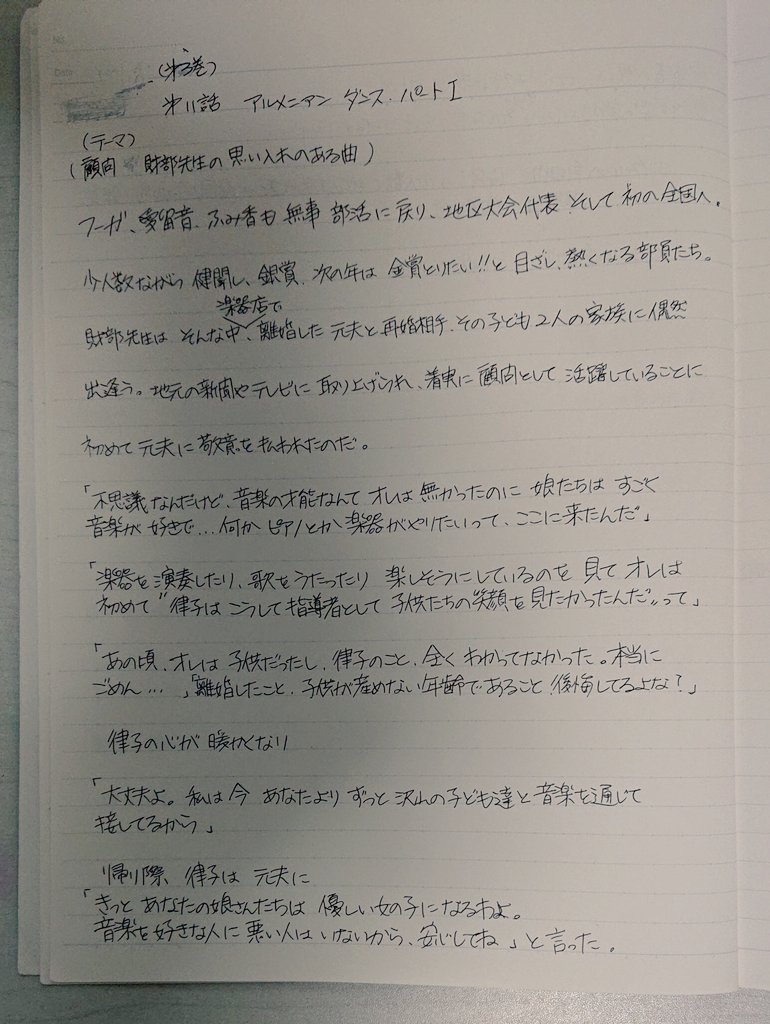 (第3巻)
第11話 アルメニアン ダンス・パートI
(テーマ)
(顧問 財部先生の思い入れのある曲)
フーガ、愛留音、ふみ香も 無事 部活に戻り、地区大会代表 そして 初の全国へ。
少人数ながら 健闘し、銀賞、次の年は 金賞とりたい!!と 目ざし、熱くなる部員たち。
楽器店で
財部先生は そんな中、離婚した 元夫と 再婚相手、その子ども2人の家族に偶然
出逢う。地元の新聞やテレビに取り上げられ、着実に顧問として 活躍していることに
初めて 元夫に 敬意を払われたのだ。
「不思議なんだけど、音楽の才能なんて オレは 無かったのに 娘たちは すごく
音楽が 好きで…何か ピアノとか楽器がやりたいって、ここに来たんだ」
「楽器を演奏したり、歌をうたったり 楽しそうにしているのを 見て オレは
初めて"律子は こうして指導者として 子供たちの笑顔を見たかったんだ"って」
「あの頃、オレは 子供だったし、律子のこと、全く わかってなかった。本当に
ごめん…」「離婚したこと、子供が産めない年齢であること 後悔してるよな?」
律子の心が 暖かくなり
「大丈夫よ。私は今 あなたより ずっと 沢山の子ども達と 音楽を通じて
接してるから」
帰り際、律子は 元夫に
「きっと あなたの娘さんたちは 優しい女の子になるわよ。
音楽を好きな人に 悪い人は いないから、安心してね」と言った。